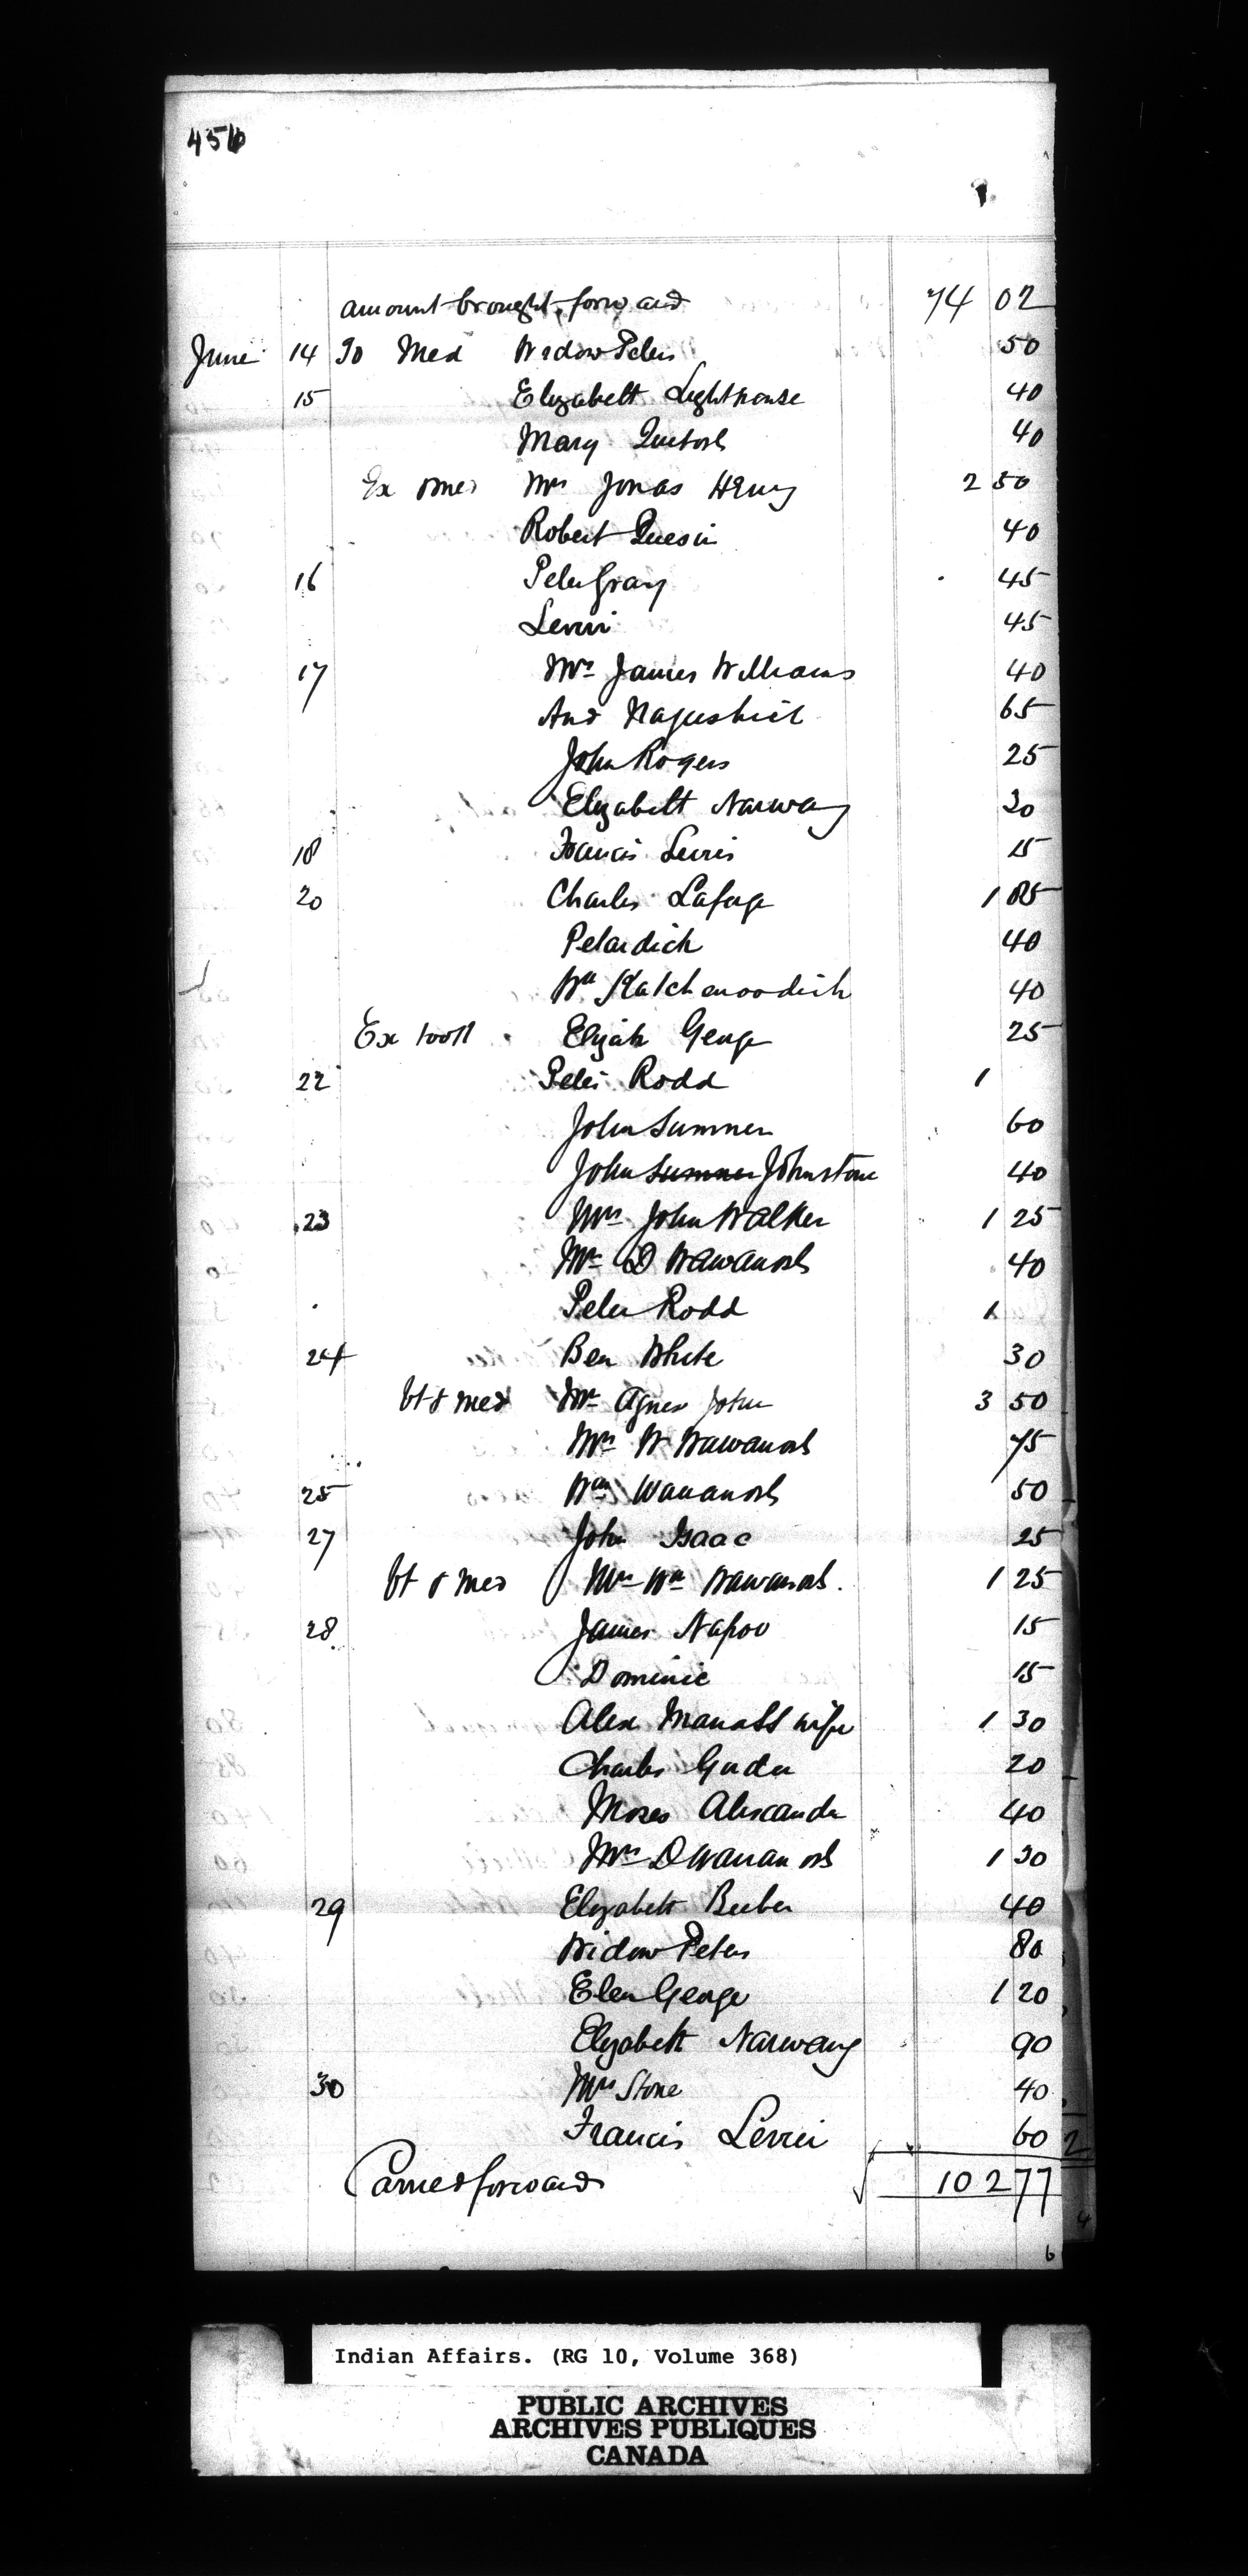 456
amount brought forward 74 02
June 14 To Med Widow Peters 50
15 Elizabeth Lighthouse 40
Mary 40
Ex & Med Mrs Jonas Henry 2 50
Robert 40
16 Peter Gray 45
Levi 45
17 Mrs James Williams 40
And 65
John Rogers 25
Elizabeth Narwang
18 Francis Levi 15
20 Charles Laforge 1
Petardick 40
Wm 40
Ex tooth Elijah George 25
22 Peter Rodd 1
John Summer 60
John Summer Johnstone 40
23 Mrs John Walker 1 25
Mrs D Wawanosh 40
Peter Rodd 1
24 Ben White 30
Vt & med Mrs Agnes John 3 50
Mrs W Wawanosh 75
25 Wm Wawanosh 50
27 John Isaac 25
Vt & med Mrs Wm Wawanosh. 1 25
28 James Napoo 15
Dominic 15
Alex Manass wife 1 30
Charles 20
Moses Alexander 40
Mrs D Wawanosh 1 30
29 Elizabeth 40
Widow Peters 80
Elen George 1 20
Elizabeth Narwang 90
30 Mrs Stone 40
Francis Levi 60
Carried forward 102 77
Indian Affairs. (RG 10, Volume 368)
PUBLIC ARCHIVES
ARCHIVES PUBLIQUES
CANADA